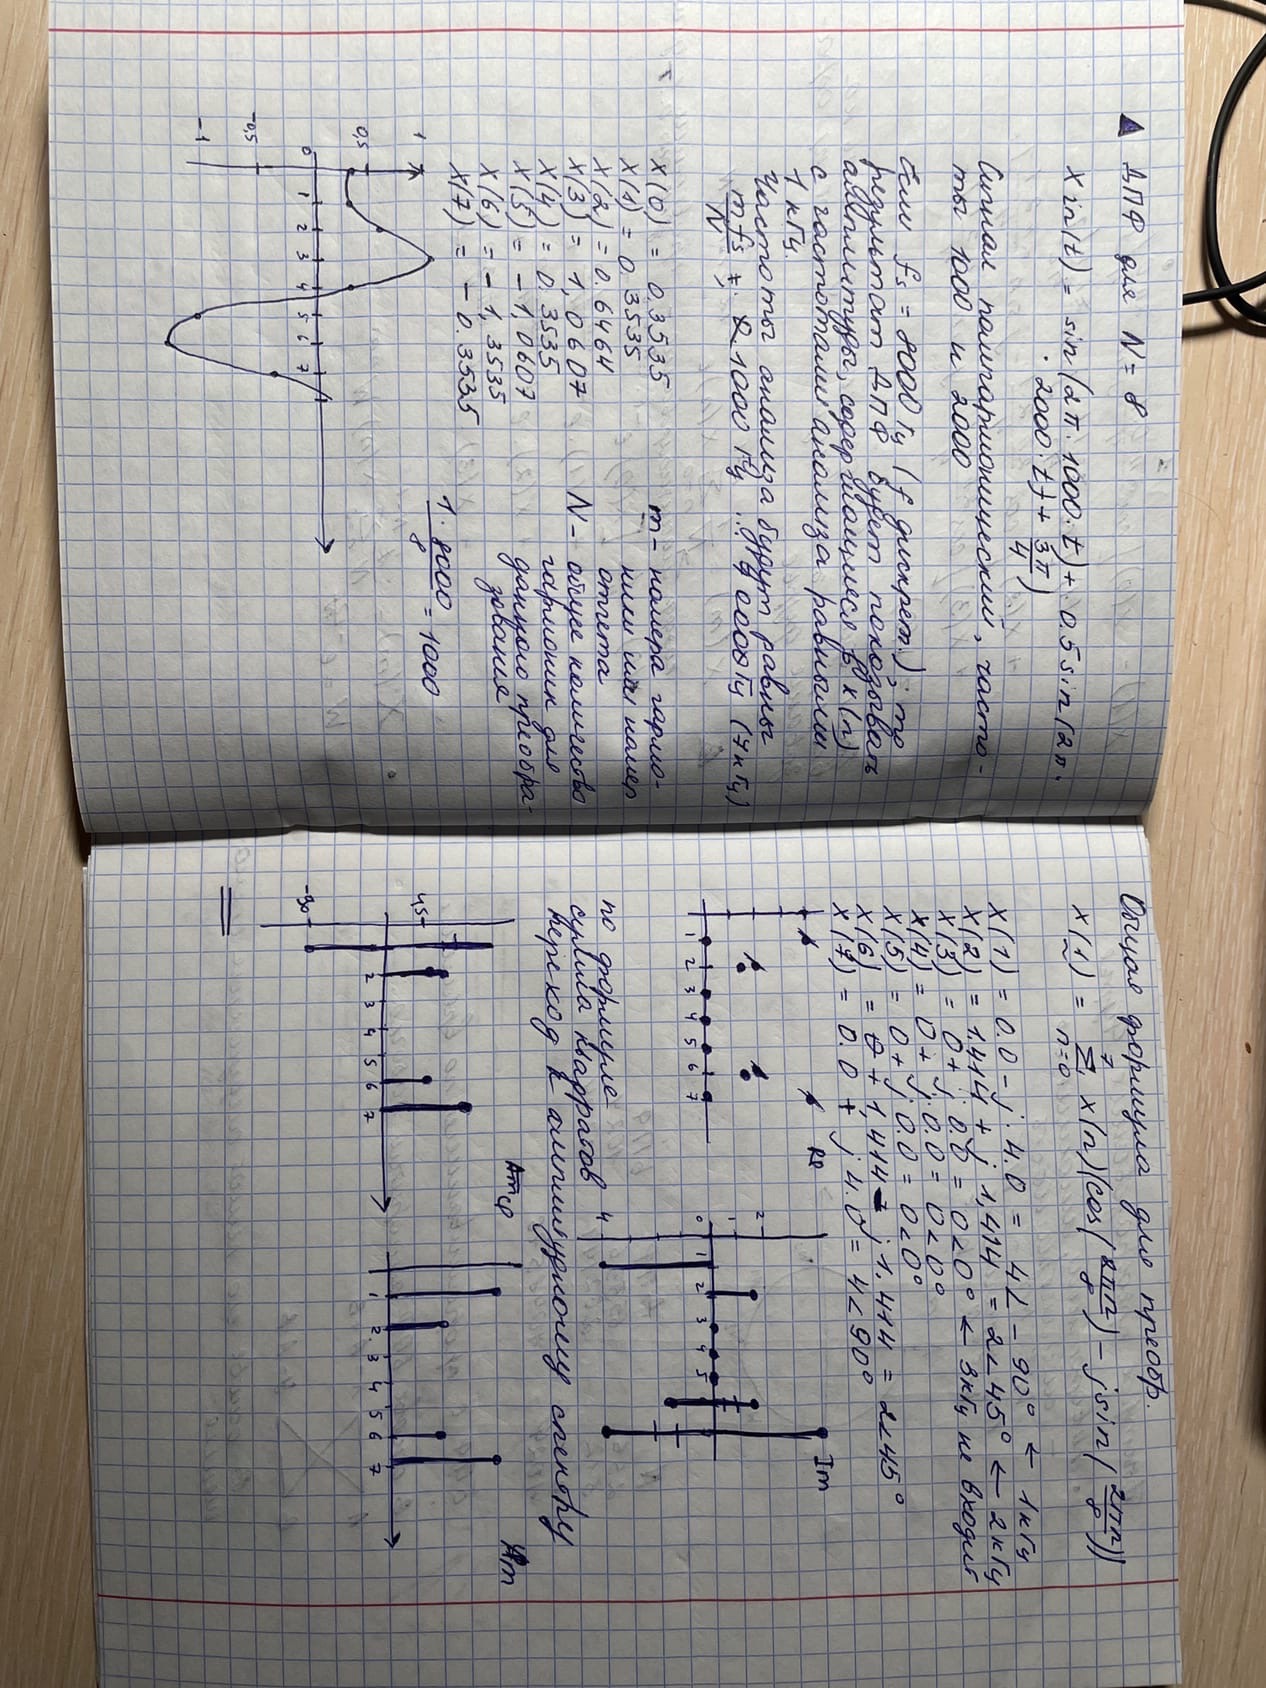 ДПФ для N = 8
Xin(t) = sin(2π·1000·t) + 0.5sin(2π·
·2000·t) + 3π/4)
Сигнал полигармонический, часто-
ты 1000 и 2000
Если fs = 8000 Гц (f дискрет.); то
результат ДПФ будет показывать
амплитуды, содержащиеся в x(n)
с частотами анализа равными
1 кГц.
Частоты анализа будут равны
mfs/N 1000 Гц ... Гц (7кГц)
X(0) = 0.3535
X(1) = 0.3535
X(2) = 0.6464
X(3) = 1,0607
X(4) = 0.3535
X(5) = -1,0607
X(6) = -1,3535
X(7) = -0.3535
m - номера гармо-
ники или номер
отчета
N - общее количество
гармоник для
данного преобра-
зования
1·8000/8 = 1000
1
0,5
0 1 2 3 4 5 6 7
-0,5
-1
Общая формула для преобр.
X(1) = 7 Σ n=0 x(n)(cos(2πn/8) - jsin(2πn/8))
X(1) = 0.0 - j·4.0 = 4∠-90° ← 1кГц
X(2) = 1.414 + j 1,414 = 2∠45° ← 2кГц
X(3) = 0 + j 0.0 = 0∠0° ← 3кГц не входит
X(4) = 0 + j 0.0 = 0∠0°
X(5) = 0 + j 0.0 = 0∠0°
X(6) = 1,414 - j1.414 = 2∠45°
X(7) = 0.0 + j 4.0 = 4∠90°
Re
1 2 3 4 5 6 7
Im
2
1
0 1 2 3 4 5
4
по формуле
сумма квадратов
переход к амплитудному спектру
φ
45
2 3 4 5 6 7
-90
Am
1 2 3 4 5 6 7